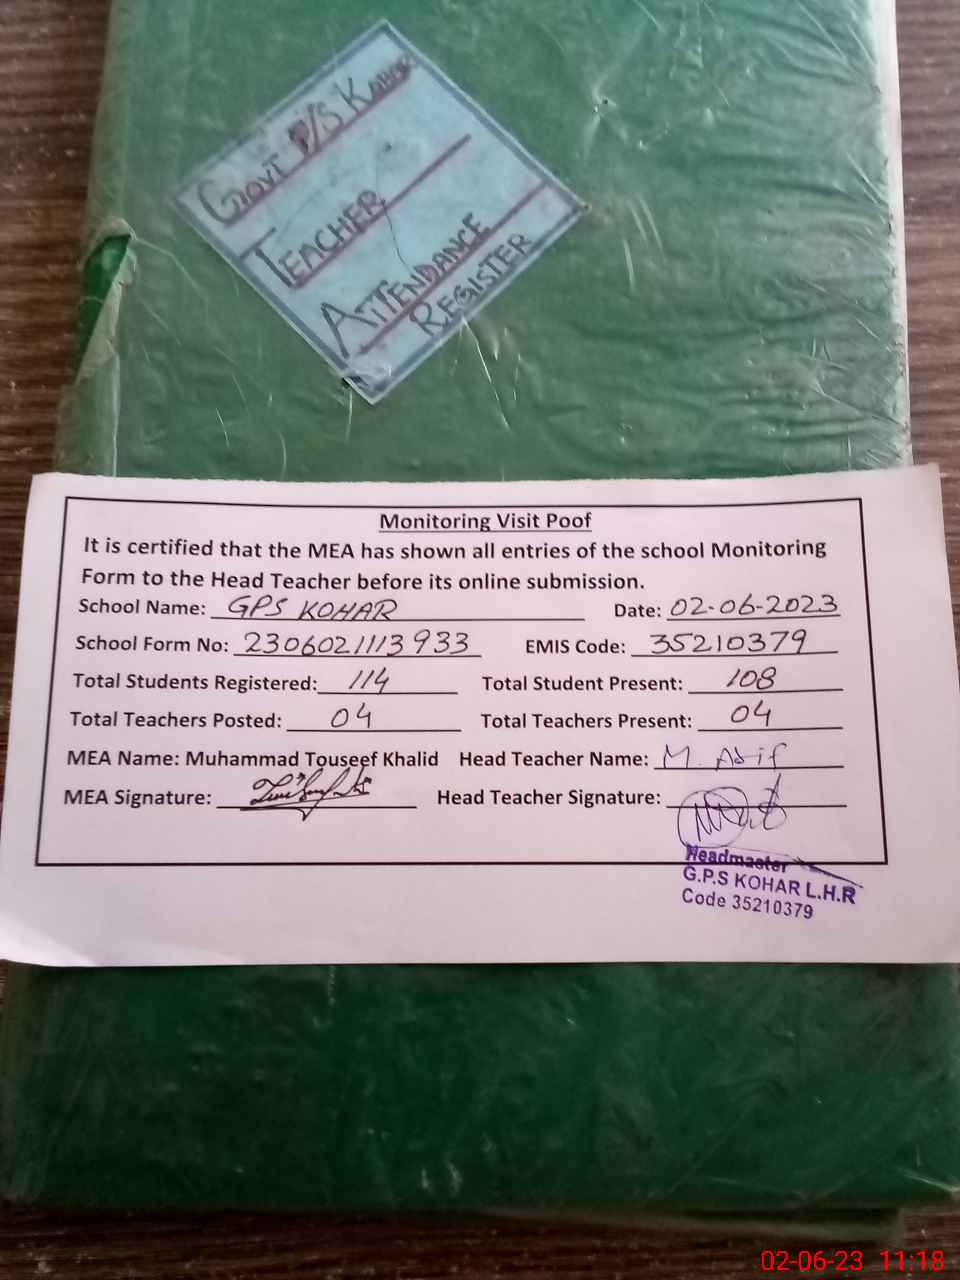 GOVT P/S KOHAR
TEACHER
ATTENDANCE
REGISTER
Monitoring Visit Poof
It is certified that the MEA has shown all entries of the school Monitoring
Form to the Head Teacher before its online submission.
School Name: GPS KOHAR Date: 02-06-2023
School Form No: 2306021113933 EMIS Code: 35210379
Total Students Registered: 114 Total Student Present: 108
Total Teachers Posted: 04 Total Teachers Present: 04
MEA Name: Muhammad Touseef Khalid Head Teacher Name: M. Asif
MEA Signature: Head Teacher Signature:
Headmaster
G.P.S KOHAR L.H.R
Code 35210379
02-06-23 11:18